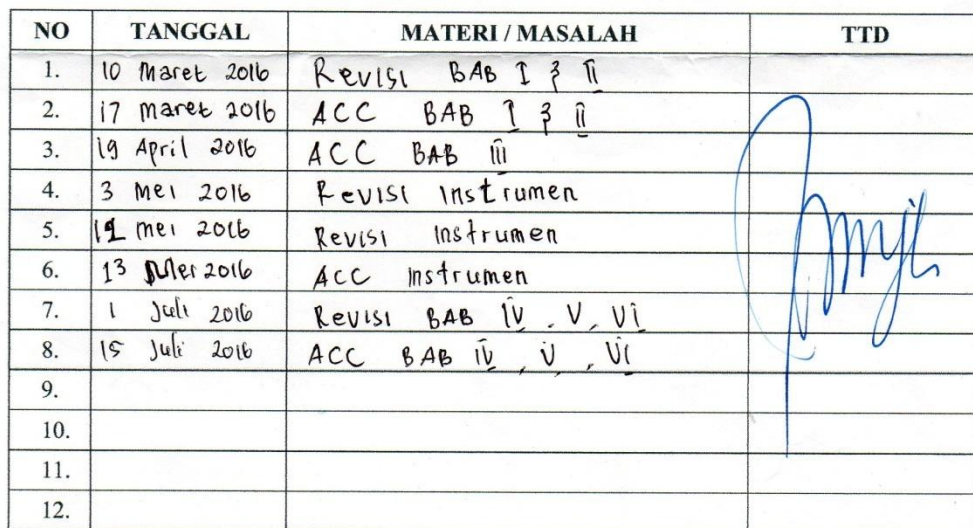 NO TANGGAL MATERI / MASALAH TTD
1. 10 Maret 2016 Revisi BAB I & II
2. 17 Maret 2016 ACC BAB I & II
3. 19 April 2016 ACC BAB III
4. 3 Mei 2016 Revisi Instrumen
5. Mei 2016 Revisi Instrumen
6. 13 Mei 2016 ACC Instrumen
7. 1 Juli 2016 Revisi BAB IV, V, VI
8. 15 Juli 2016 ACC BAB IV, V, VI
9.
10.
11.
12.